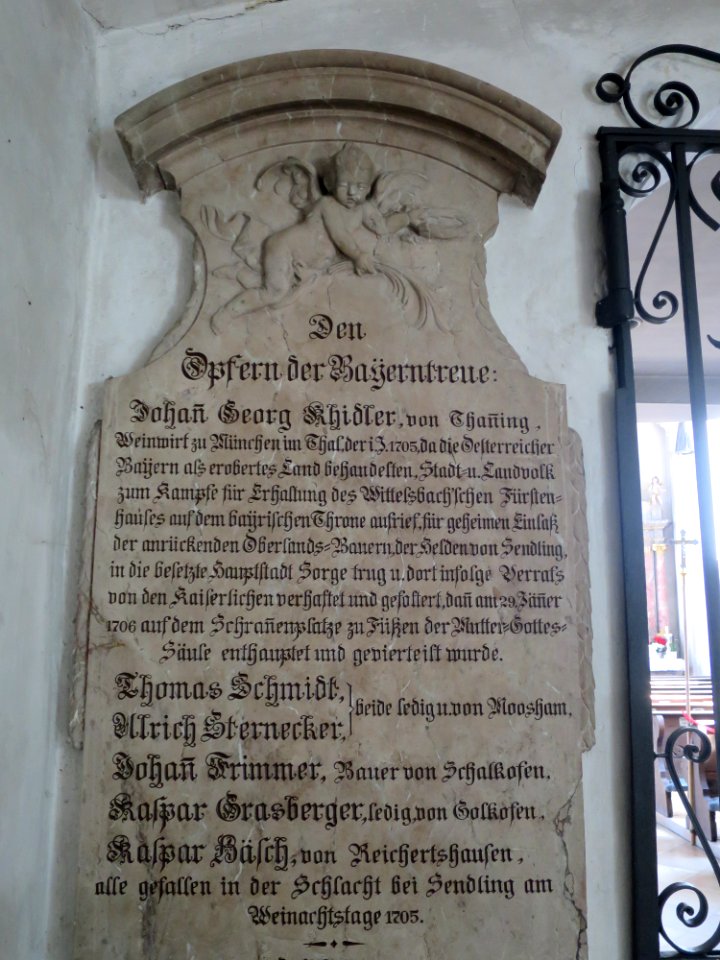 Den
Opfern der Bayerntreue:
Johañ Georg Khidler, von Thañing,
Weinwirt zu München im Thal, der i. J. 1705, da die Oesterreicher
Bayern als erobertes Land behandelten, Stadt- u. Landvolk
zum Kampfe für Erhaltung des Wittelsbach'schen Fürsten-
hauses auf dem bayrischen Throne aufrief, für geheimen Einlaß
der anrückenden Oberlands-Bauern, der Helden von Sendling,
in die besetzte Hauptstadt Sorge trug u. dort infolge Verrats
von den Kaiserlichen verhaftet und gefoltert, dañ am 29. Jäñer
1706 auf dem Schrañenplatze zu Füßen der Mutter-Gottes-
Säule enthauptet und gevierteilt wurde.
Thomas Schmidt,
Ulrich Sternecker,
beide ledig u. von Moosham,
Johañ Frimmer, Bauer von Schalkofen,
Kaspar Grasberger, ledig, von Golkofen,
Kaspar Bäsch, von Reichertshausen,
alle gefallen in der Schlacht bei Sendling am
Weinachtstage 1705.